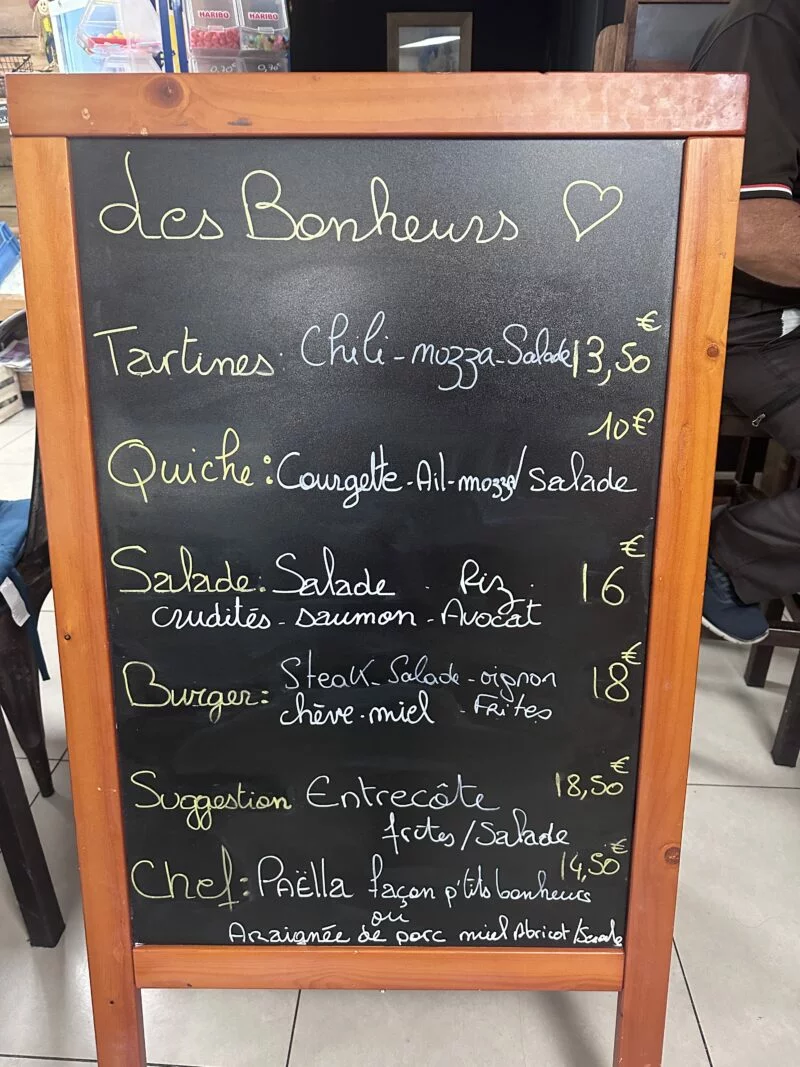 HARIBO HARIBO
0,70€ 0,70€
Les Bonheurs
Tartines: Chili-mozza-Salade 13,50€
10€
Quiche: Courgette-Ail-mozza/Salade
Salade: Salade. Riz. 16€
crudités-saumon-Avocat
Burger: Steak-Salade-oignon 18€
chève.miel -Frites
Suggestion Entrecôte 18,50€
frites/Salade
14,50€
Chef: Paëlla façon p'tits bonheurs
ou
Araignée de porc miel Abricot/Salade